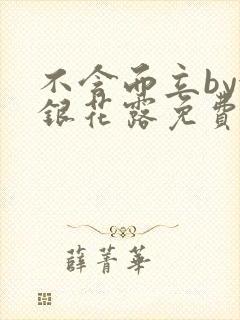 不含而立by
銀花露免費
薛菁華